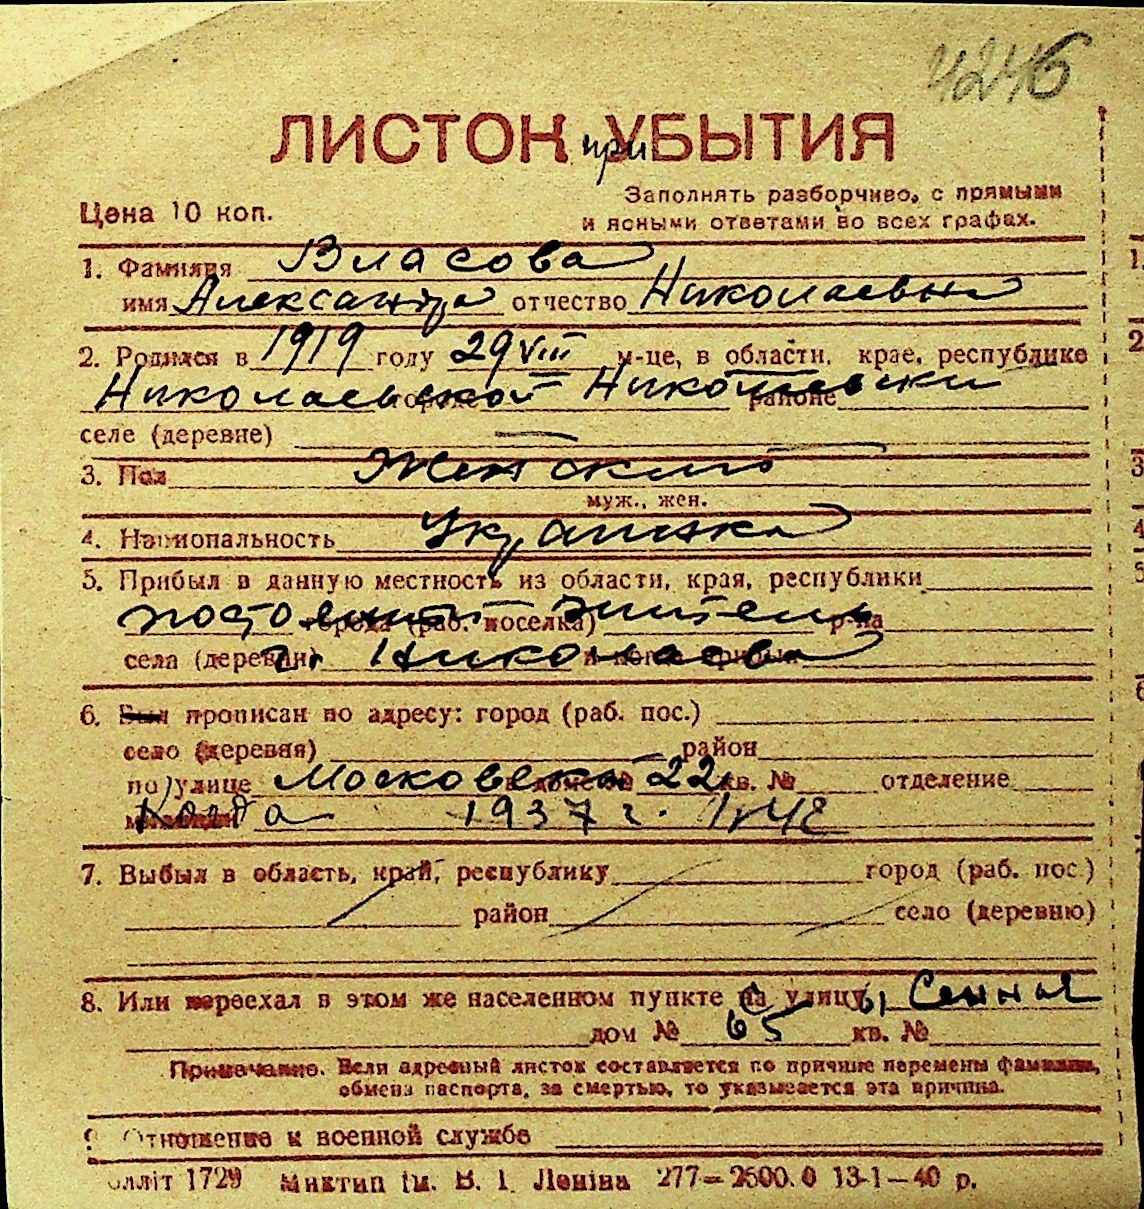 4246
ЛИСТОК при УБЫТИЯ
Цена 10 коп.
Заполнять разборчиво, с прямыми
и ясными ответами во всех графах.
1. Фамилия Власова
имя Александра отчество Николаевна
2. Родился в 1919 году 29 VIII м-це, в области, крае, республике
Николаевской городе Николаевски районе
селе (деревне) —
3. Пол Женский
муж., жен.
4. Национальность Украинка
5. Прибыл в данную местность из области, края, республики
постоянный города (раб. поселка) житель р-на
села (деревни) г. Николаева и когда прибыл
6. Был прописан по адресу: город (раб. пос.)
село (деревня) район
по улице Московской в доме № 22 кв. № отделение
милиции Когда 1937 г.
7. Выбыл в область, край, республику город (раб. пос.)
район село (деревню)
8. Или переехал в этом же населенном пункте на улицу Сенная
дом № 65 кв. №
Примечание. Если адресный листок составляется по причине перемены фамилии,
обмена паспорта, за смертью, то указывается эта причина.
9. Отношение к военной службе
1729 Миктип ім. В. І. Леніна 277—2500.0 13-1—40 р.